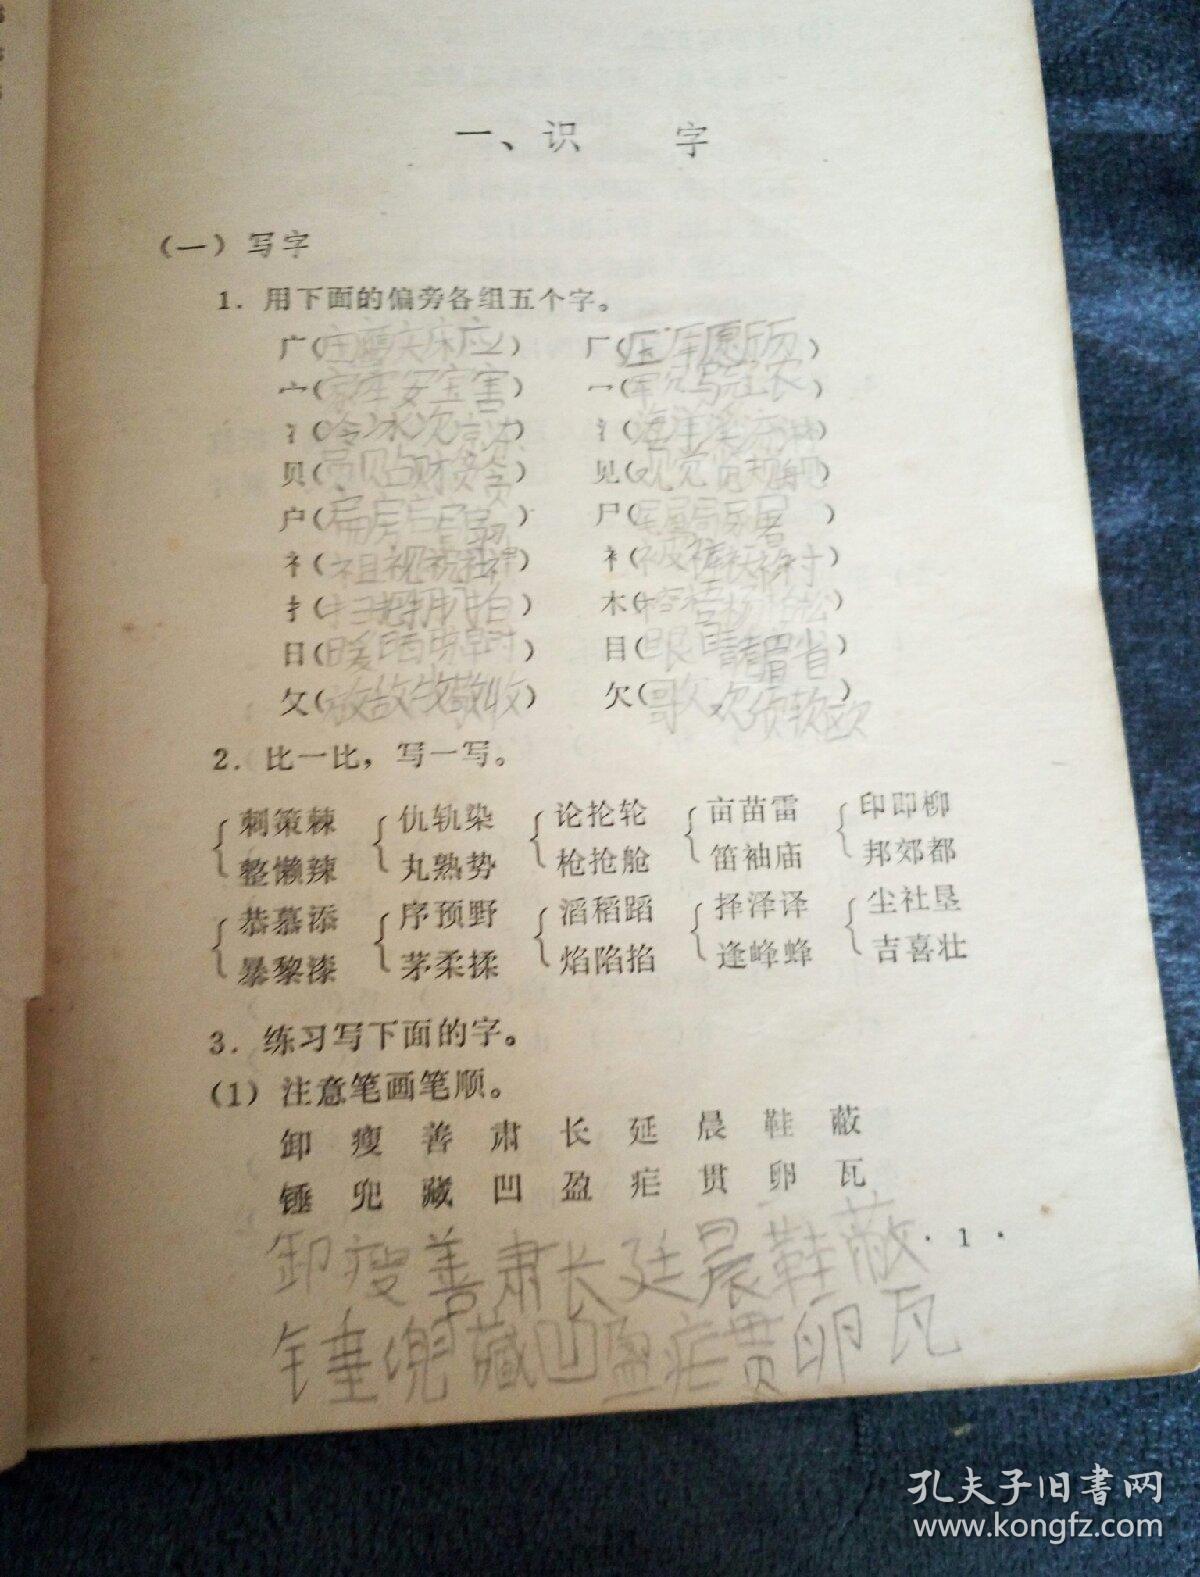 一、识 字
（一）写字
1．用下面的偏旁各组五个字。
广（庄 床应） 厂（压厍愿 ）
宀（家牢安宝害） 冖（军 写冠农）
冫（冷冰次凉冻） 氵（海洋 ）
贝（员贴财 贪） 见（观觉 规 ）
户（扁房 ） 尸（ 居）
礻（祖视祝社神） 衤（被裤袄 衬）
扌（扫把 扒拍） 木（ 杨柏松）
日（暖晒 旱时） 目（眼睛 眉省）
攵（放故牧敬收） 欠（歌欢 软欧）
2．比一比，写一写。
刺策棘 仇轨染 论抡轮 亩苗雷 印即柳
整懒辣 丸熟势 枪抢舱 笛袖庙 邦郊都
恭慕添 序预野 滔稻蹈 择泽译 尘社垦
暴黎漆 茅柔揉 焰陷掐 逢峰蜂 吉喜壮
3．练习写下面的字。
（1）注意笔画笔顺。
卸 瘦 善 肃 长 延 晨 鞋 蔽
锤 兜 藏 凹 盈 疟 贯 卵 瓦
·1·
卸瘦善肃长廷晨鞋蔽
锤兜藏凹盈疟贯卵瓦
孔夫子旧书网
www.kongfz.com